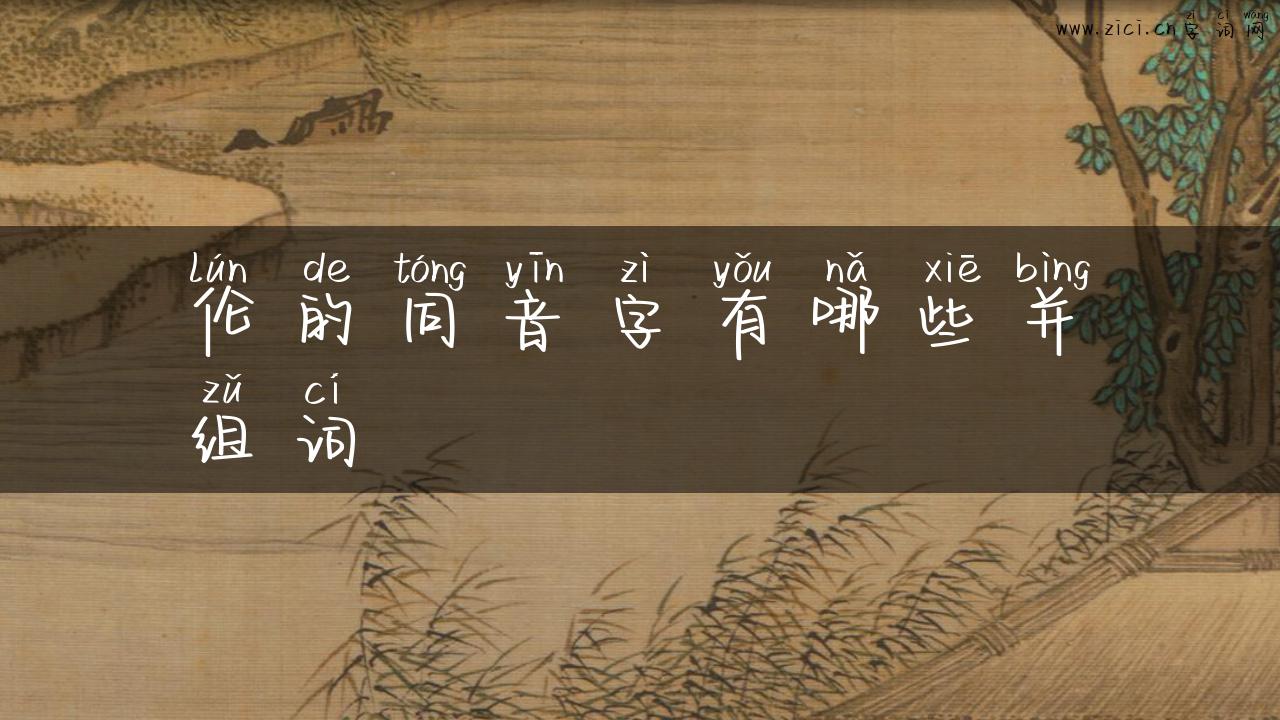 zì cí wǎng
www.zici.cn字词网
lún de tóng yīn zì yǒu nǎ xiē bìng
伦的同音字有哪些并
zǔ cí
组词